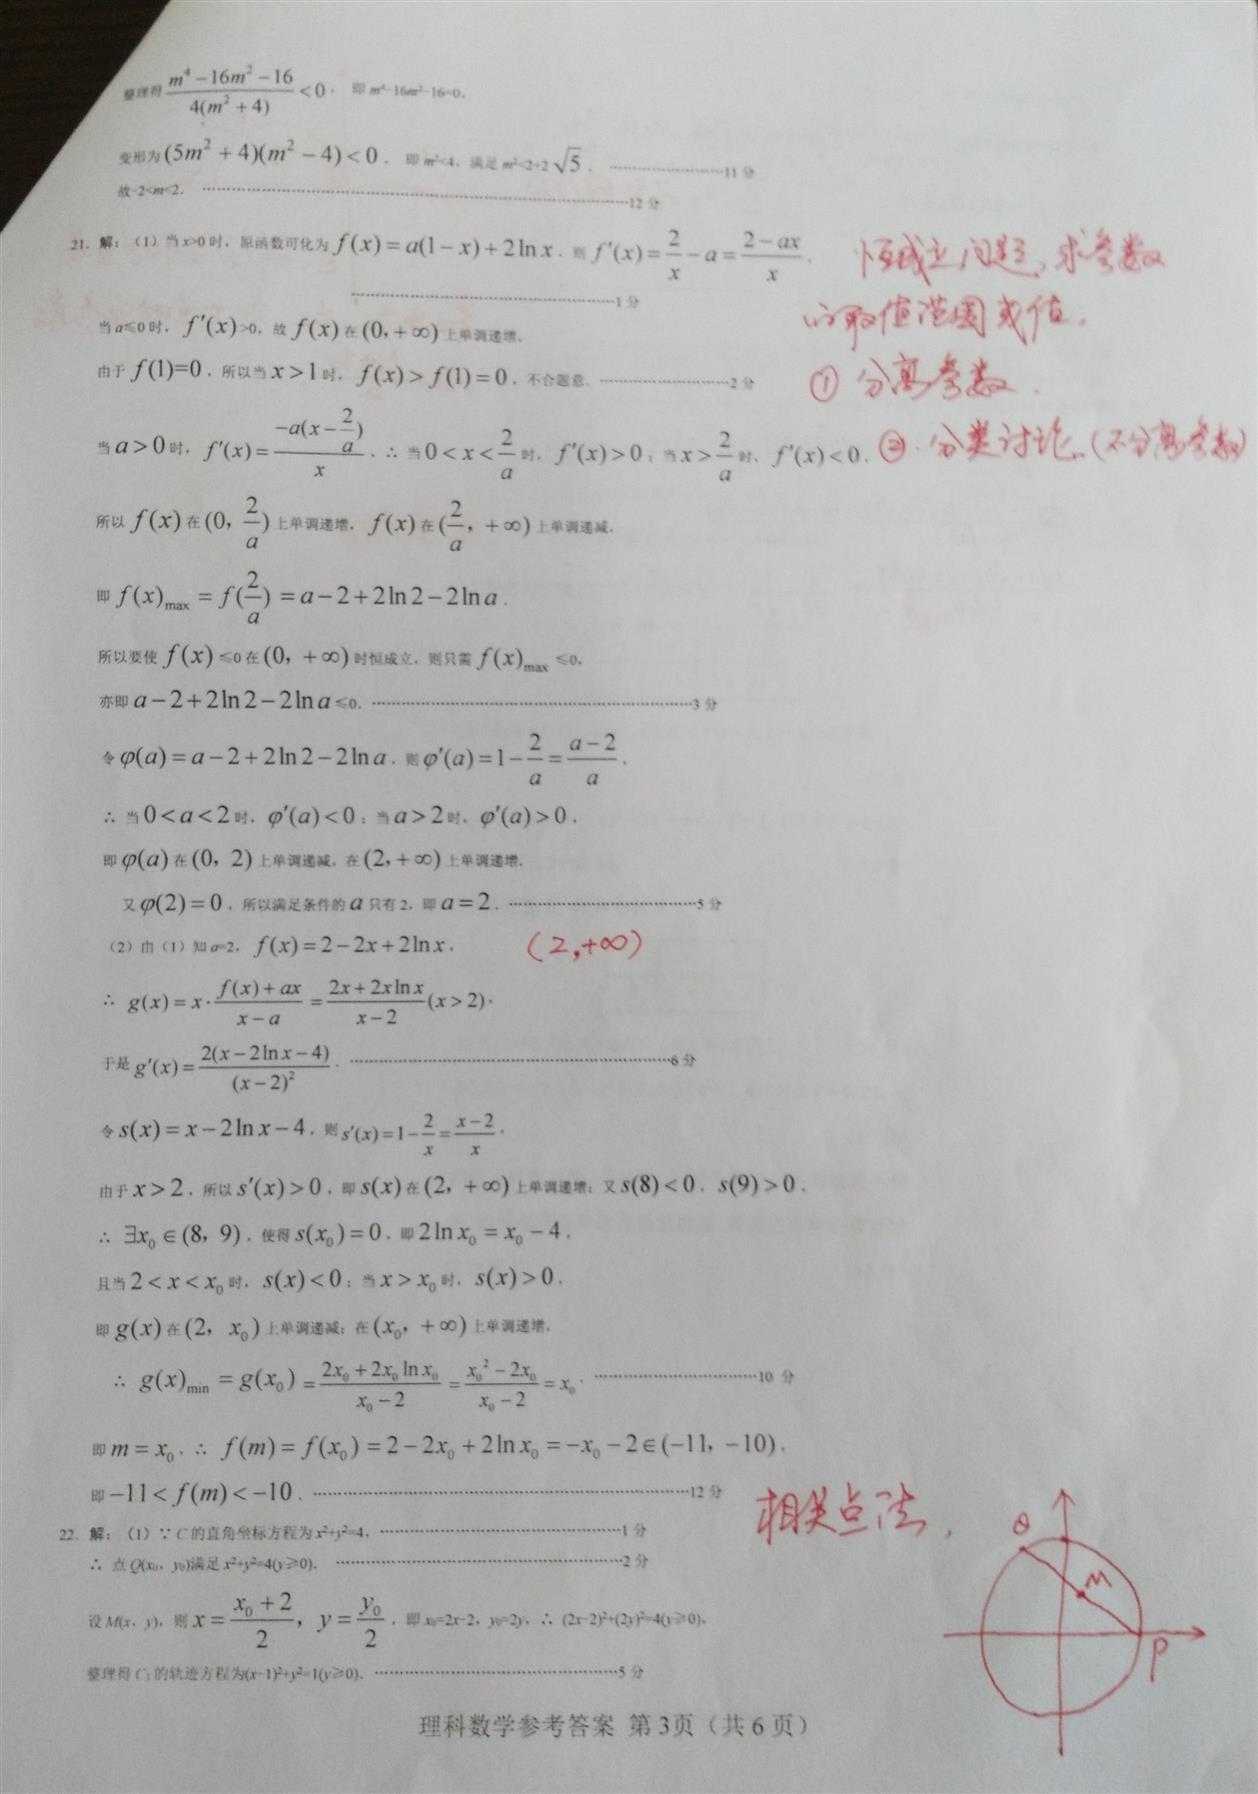 整理得 (m⁴－16m²－16)/(4(m²＋4))<0， 即 m⁴－16m²－16<0，
变形为 (5m²＋4)(m²－4)<0． 即 m²<4，满足 m²<2+2√5． ……………………11 分
故－2<m<2． ……………………12 分
21．解：（1）当 x>0 时，原函数可化为 f(x)=a(1－x)＋2ln x．则 f′(x)=2/x－a=(2－ax)/x．
……………………1 分
恒成立问题，求参数
的取值范围或值．
当 a≤0 时， f′(x)>0，故 f(x) 在 (0,＋∞) 上单调递增，
由于 f(1)=0，所以当 x>1 时， f(x)>f(1)=0，不合题意． ……………………2 分
① 分离参数．
当 a>0 时， f′(x)=－a(x－2/a)/x，∴ 当 0<x<2/a 时， f′(x)>0；当 x>2/a 时， f′(x)<0．
②．分类讨论．（不分离参数）
所以 f(x) 在 (0， 2/a) 上单调递增， f(x) 在 (2/a，＋∞) 上单调递减．
即 f(x)max = f(2/a) = a－2＋2ln2－2ln a．
所以要使 f(x)≤0 在 (0，＋∞) 时恒成立，则只需 f(x)max ≤0，
亦即 a－2＋2ln2－2ln a≤0． ……………………3 分
令 φ(a)=a－2＋2ln2－2ln a，则 φ′(a)=1－2/a=(a－2)/a．
∴ 当 0<a<2 时， φ′(a)<0；当 a>2 时， φ′(a)>0，
即 φ(a) 在 (0，2) 上单调递减，在 (2,＋∞) 上单调递增．
又 φ(2)=0，所以满足条件的 a 只有 2，即 a=2． ……………………5 分
（2）由（1）知 a=2， f(x)=2－2x＋2ln x，
(2,+∞)
∴ g(x)=x·(f(x)＋ax)/(x－a)=(2x＋2x ln x)/(x－2)(x>2)．
于是 g′(x)=2(x－2ln x－4)/(x－2)²． ……………………6 分
令 s(x)=x－2ln x－4，则 s′(x)=1－2/x=(x－2)/x．
由于 x>2，所以 s′(x)>0，即 s(x) 在 (2，＋∞) 上单调递增；又 s(8)<0，s(9)>0，
∴ ∃x₀∈(8，9)，使得 s(x₀)=0，即 2ln x₀=x₀－4，
且当 2<x<x₀ 时， s(x)<0；当 x>x₀ 时， s(x)>0，
即 g(x) 在 (2， x₀) 上单调递减；在 (x₀，＋∞) 上单调递增．
∴ g(x)min = g(x₀) =(2x₀＋2x₀ ln x₀)/(x₀－2)=(x₀²－2x₀)/(x₀－2)=x₀． ……………………10 分
即 m=x₀，∴ f(m)=f(x₀)=2－2x₀＋2ln x₀=－x₀－2∈(－11，－10)，
即 －11<f(m)<－10． ……………………12 分
相关点法，
22．解：（1）∵ C 的直角坐标方程为 x²+y²=4， ……………………1 分
∴ 点 Q(x₀，y₀)满足 x²+y²=4(y≥0)． ……………………2 分
设 M(x，y)，则 x=(x₀＋2)/2，y=y₀/2，即 x₀=2x－2，y₀=2y，∴ (2x－2)²+(2y)²=4(y≥0)，
整理得 C₁的轨迹方程为(x－1)²+y²=1(y≥0)． ……………………5 分
Q
M
P
理科数学参考答案 第 3页（共 6 页）